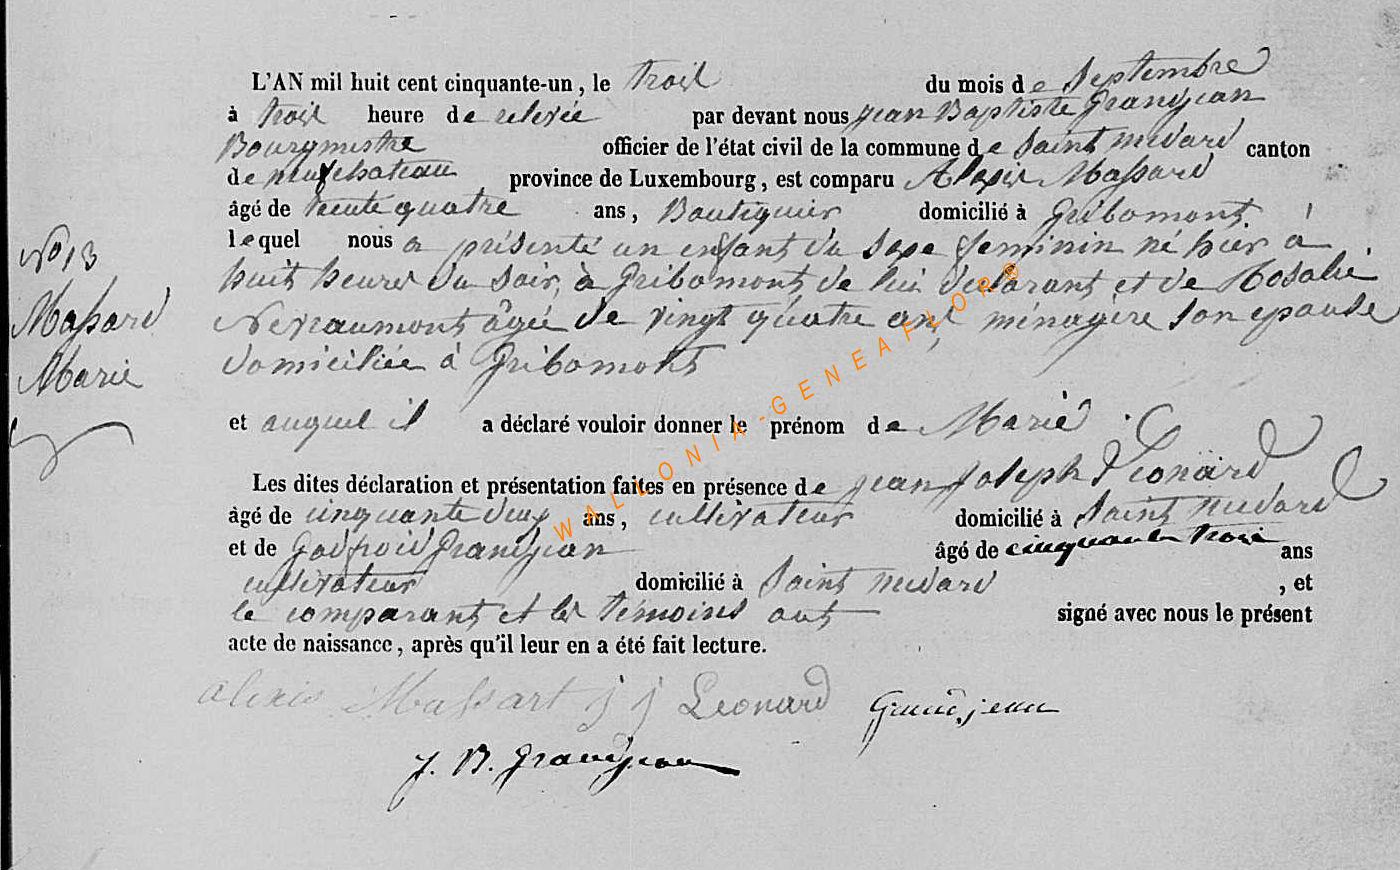 L'AN mil huit cent cinquante-un, le trois du mois de Septembre
à trois heure de relevée par devant nous jean Baptiste Grandjean
Bourgmestre officier de l'état civil de la commune de Saint medard canton
de neufchateau province de Luxembourg, est comparu Alexis Massard
âgé de trente quatre ans, Boutiquier domicilié à Gribomont,
lequel nous a présenté un enfant du sexe feminin né hier à
huit heures du soir, à Gribomont de lui déclarant et de Rosalie
agée de vingt quatre ans, ménagère son epouse
domiciliée à Gribomont
N° 13
Massard
Marie
et auquel il a déclaré vouloir donner le prénom de Marie.
Les dites déclaration et présentation faites en présence de jean joseph Léonard
âgé de cinquante deux ans, cultivateur domicilié à Saint medard
et de Godfroid Grandjean âgé de cinquante trois ans
cultivateur domicilié à Saint medard, et
le comparant et les témoins ont signé avec nous le présent
acte de naissance, après qu'il leur en a été fait lecture.
alexis Massart j j Leonard Grandjean
J. B. Grandjean
WALLONIA-GENEAFLOR®